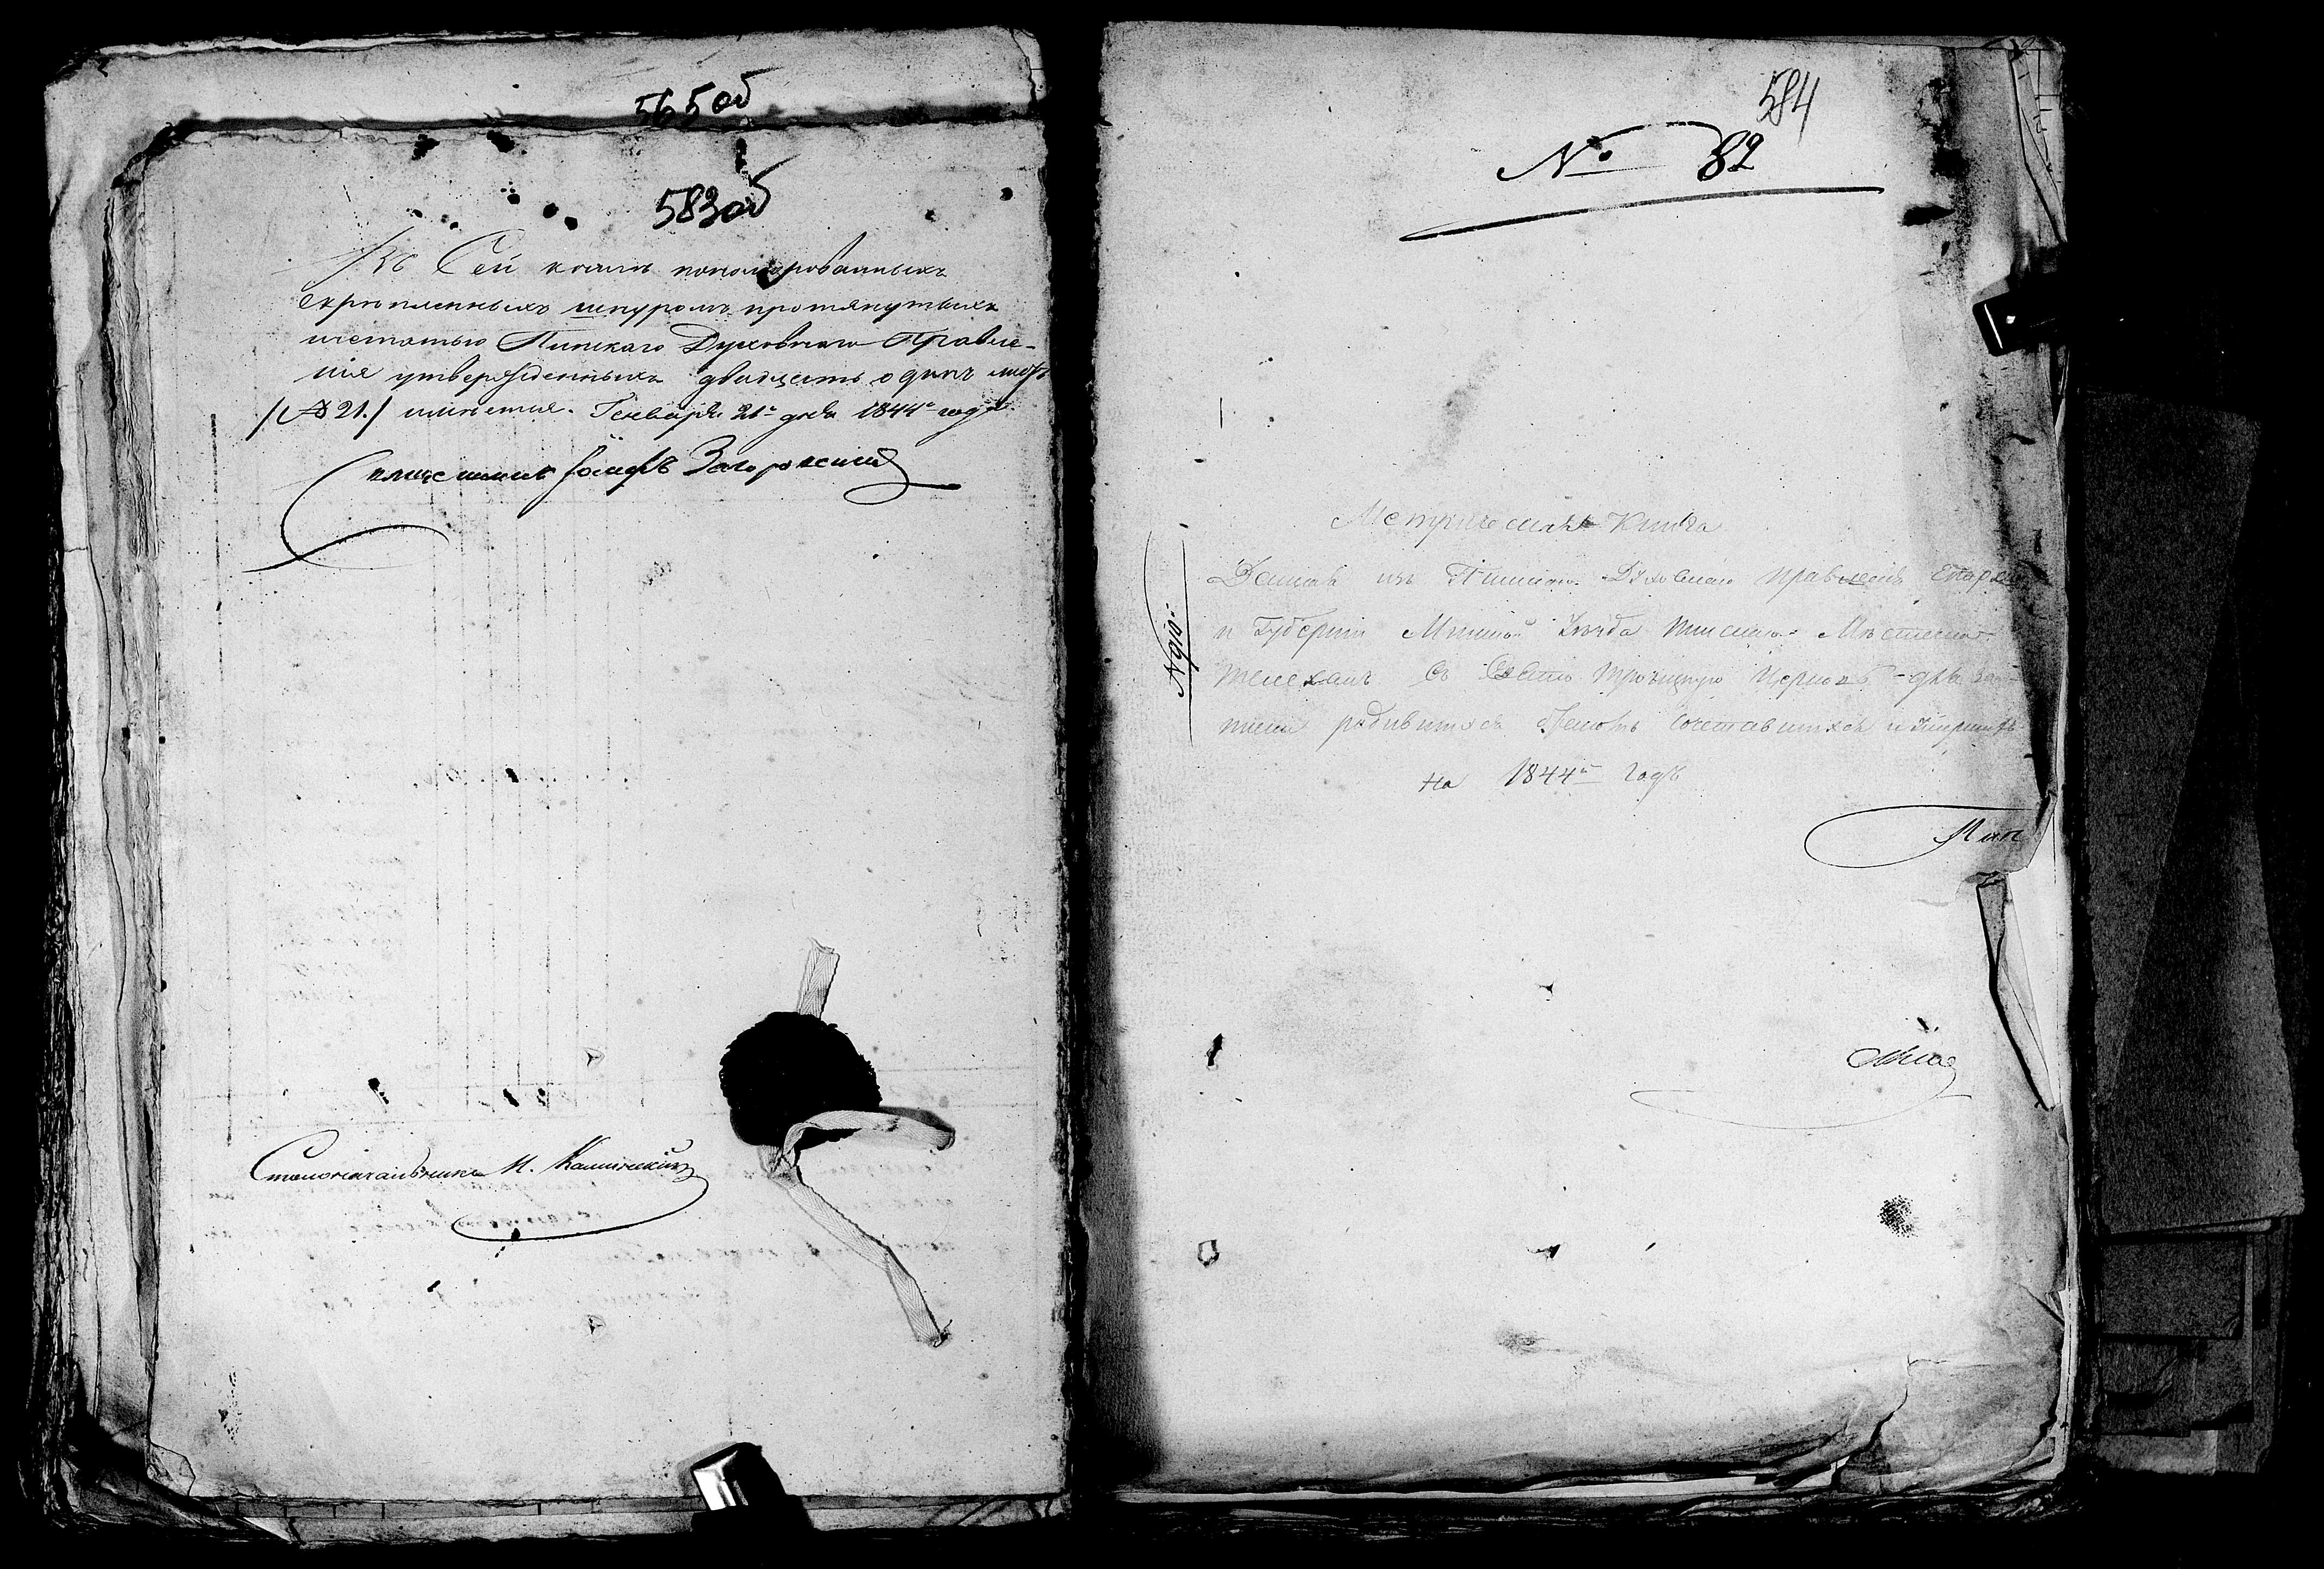 565об
583об
Въ Сей книгѣ пономерованныхъ
скрѣпленныхъ шнуромъ протянутыхъ
печатью Пинскаго Духовнаго Правле-
нія утвержденныхъ двадцать одинъ листъ
/№ 21./ имѣется. Генваря 21го дня 1844го года.
Іосифъ
Столоначальникъ
584
№ 82
Метрическая Книга
Данная изъ Пинскаго Духовнаго Правленія Епархіи
и Губерніи Минской Уѣзда Пинскаго Мѣстечка
Телеханъ въ Свято Троицкую Церковь для за-
писки родившихся бракомъ сочетавшихся и умершихъ
на 1844й годъ